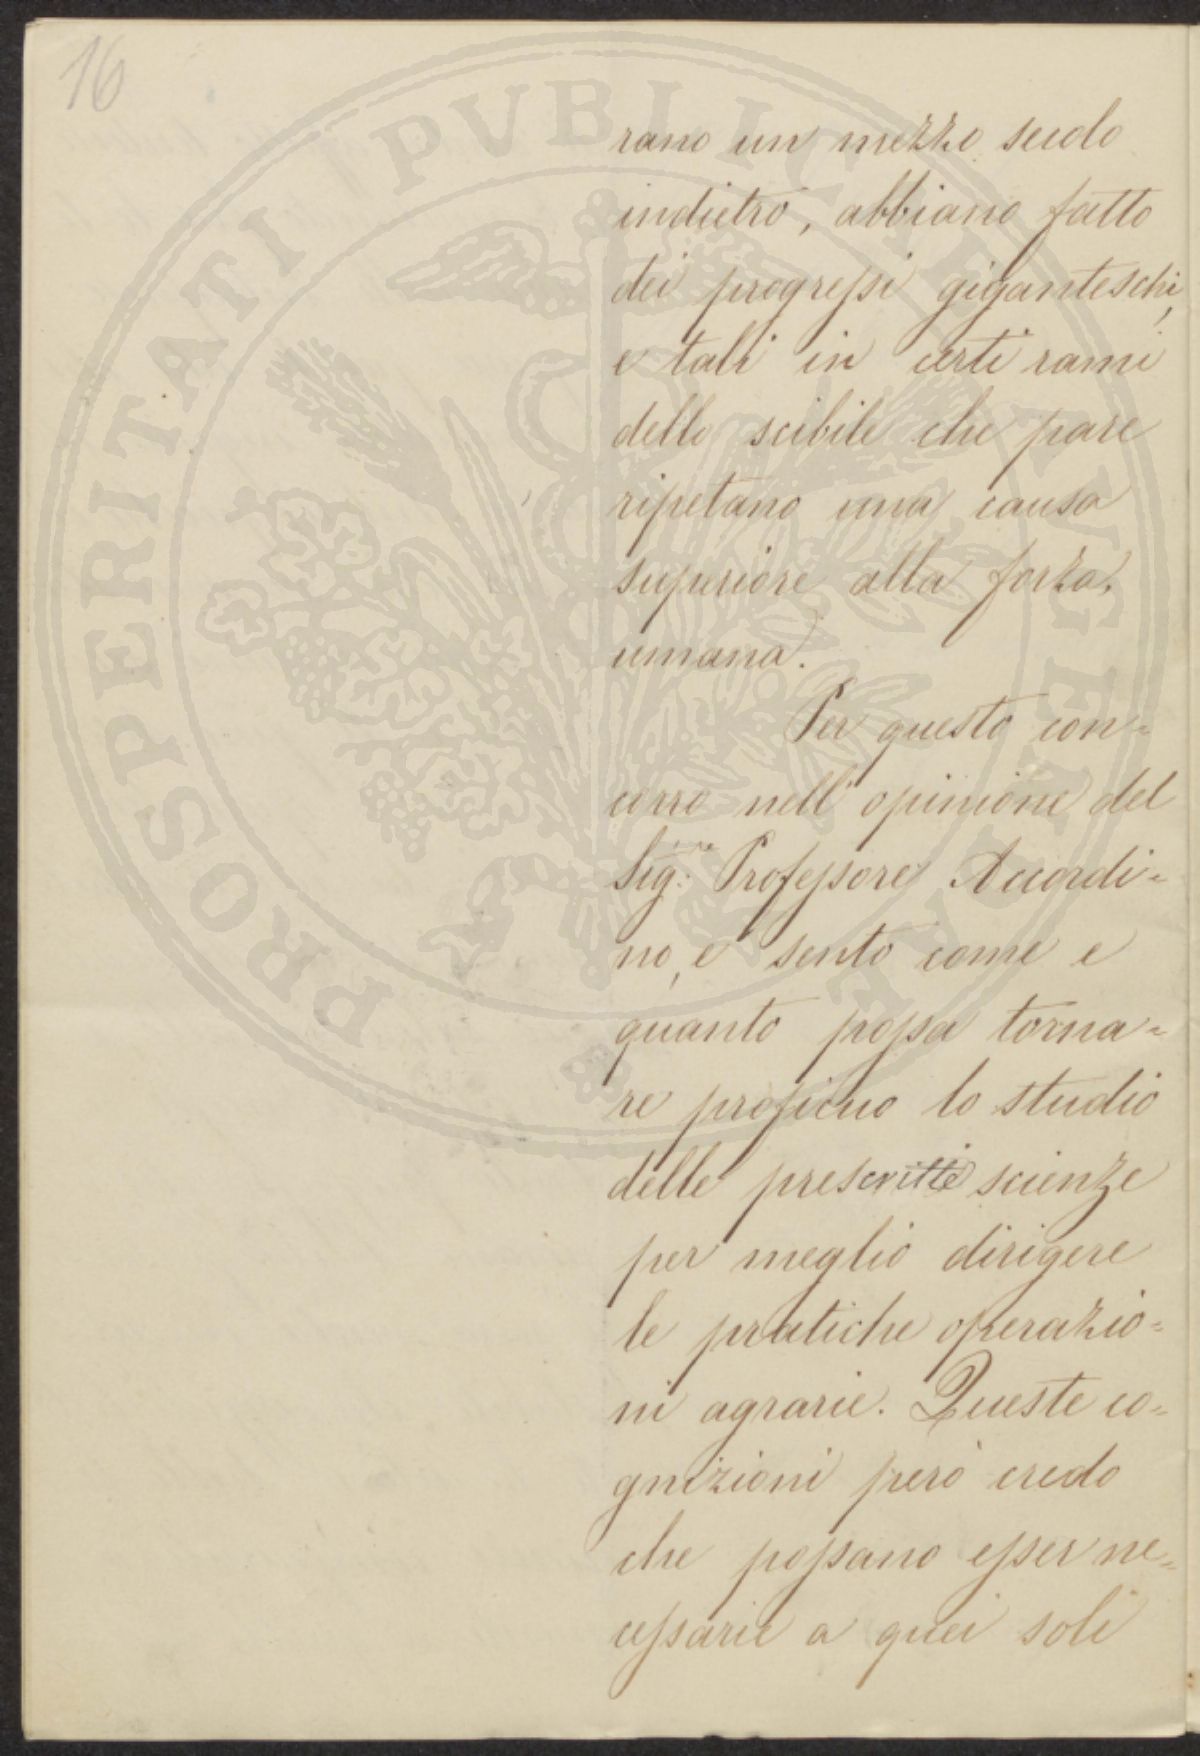 16
rano un mezzo secolo
indietro, abbiano fatto
dei progressi giganteschi,
e tali in certi rami
dello scibile che pare
ripetano una causa
superiore alla forza
umana.
Per questo con=
corro nell'opinione del
Sig.re Professore Accordi=
no, e sento come e
quanto possa torna=
re proficuo lo studio
delle prescritte scienze
per meglio dirigere
le pratiche operazio=
ni agrarie. Queste co=
gnizioni però credo
che possano esser ne=
cessarie a quei soli
PROSPERITATI PVBLICAE AVGENDAE